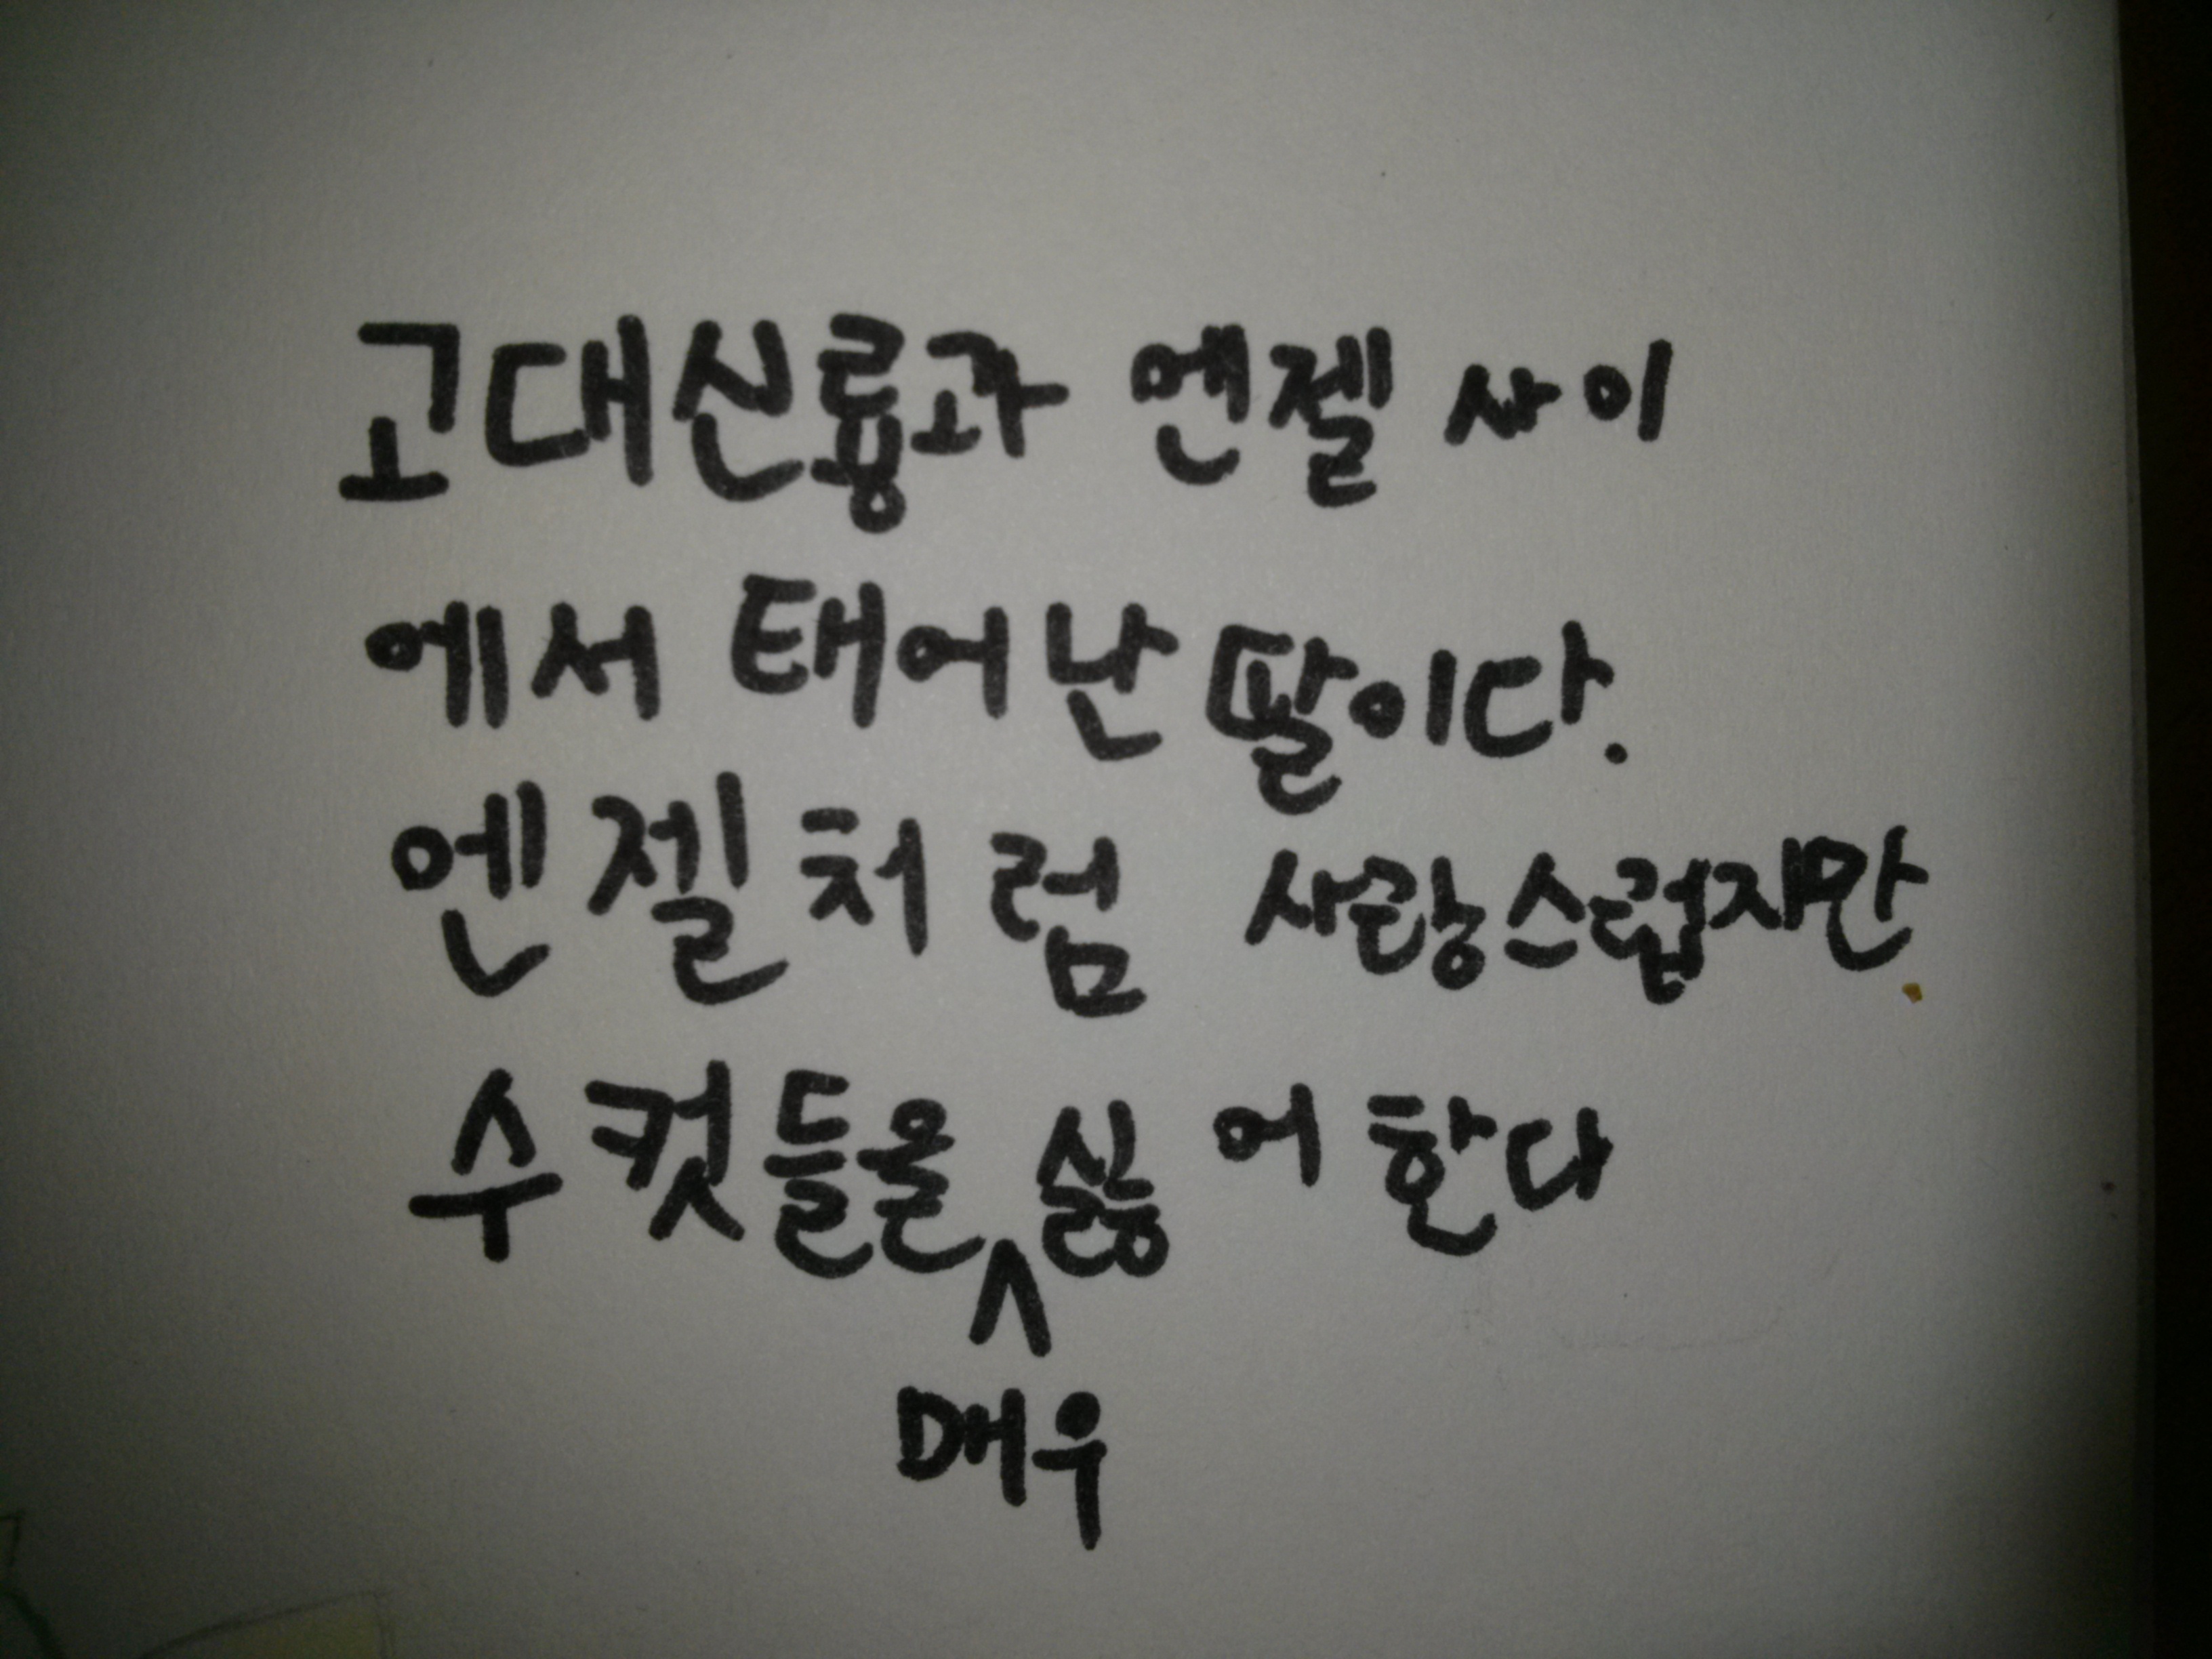 고대신룡과 엔젤 사이
에서 태어난 딸이다.
엔젤처럼 사랑스럽지만
수컷들을 싫어한다
매우